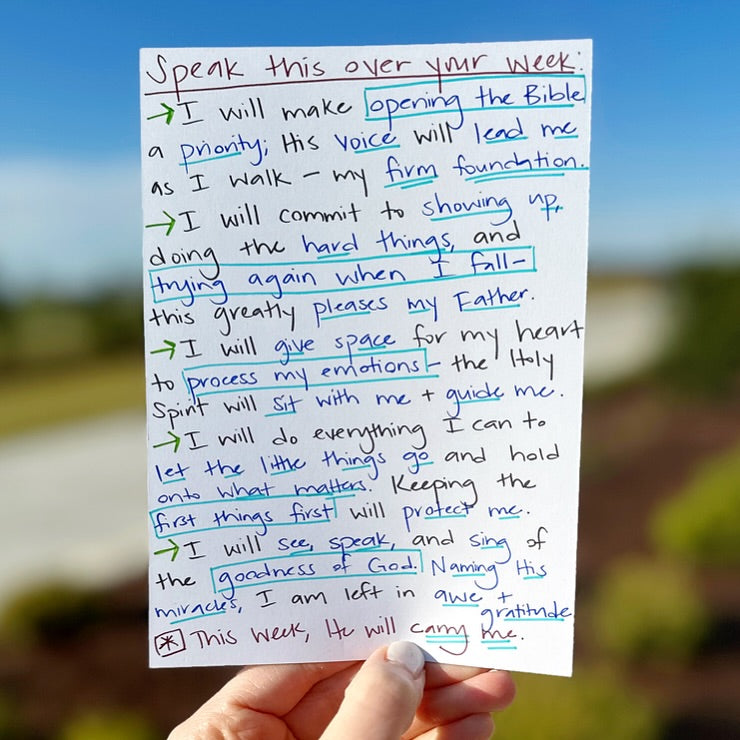 Speak this over your week:
→ I will make opening the Bible
a priority; His voice will lead me
as I walk – my firm foundation.
→ I will commit to showing up,
doing the hard things, and
trying again when I fall –
this greatly pleases my Father.
→ I will give space for my heart
to process my emotions – the Holy
Spirit will sit with me + guide me.
→ I will do everything I can to
let the little things go and hold
onto what matters. Keeping the
first things first will protect me.
→ I will see, speak, and sing of
the goodness of God. Naming His
miracles, I am left in awe +
gratitude
* This week, He will carry me.